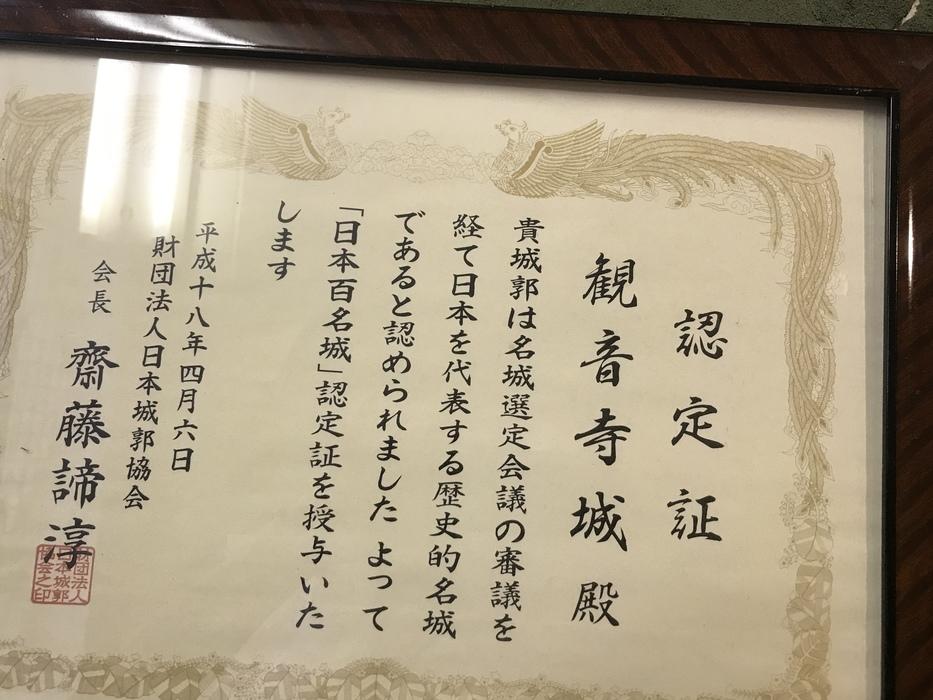 認定証
観音寺城殿
貴城郭は名城選定会議の審議を
経て日本を代表する歴史的名城
であると認められました よって
「日本百名城」認定証を授与いた
します
平成十八年四月六日
財団法人日本城郭協会
会長 齋藤諦淳
財団法人
日本城郭
協会之印